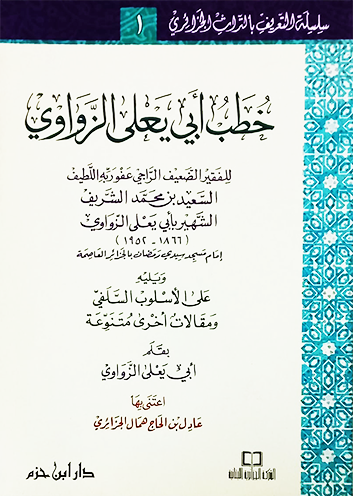 سلسلة التعريف بالتراث الجزائري
١
خطب أبي يعلى الزواوي
للفقير الضعيف الراجي عفو ربه اللطيف
السعيد بن محمد الشريف
الشهير بأبي يعلى الزواوي
(١٨٦٦ - ١٩٥٢)
إمام مسجد سيدي رمضان بالجزائر العاصمة
ويليه
على الأسلوب السلفي
ومقالات أخرى متنوعة
بقلم
أبي يعلى الزواوي
اعتنى بها
عادل بن الحاج همال الجزائري
دار ابن حزم